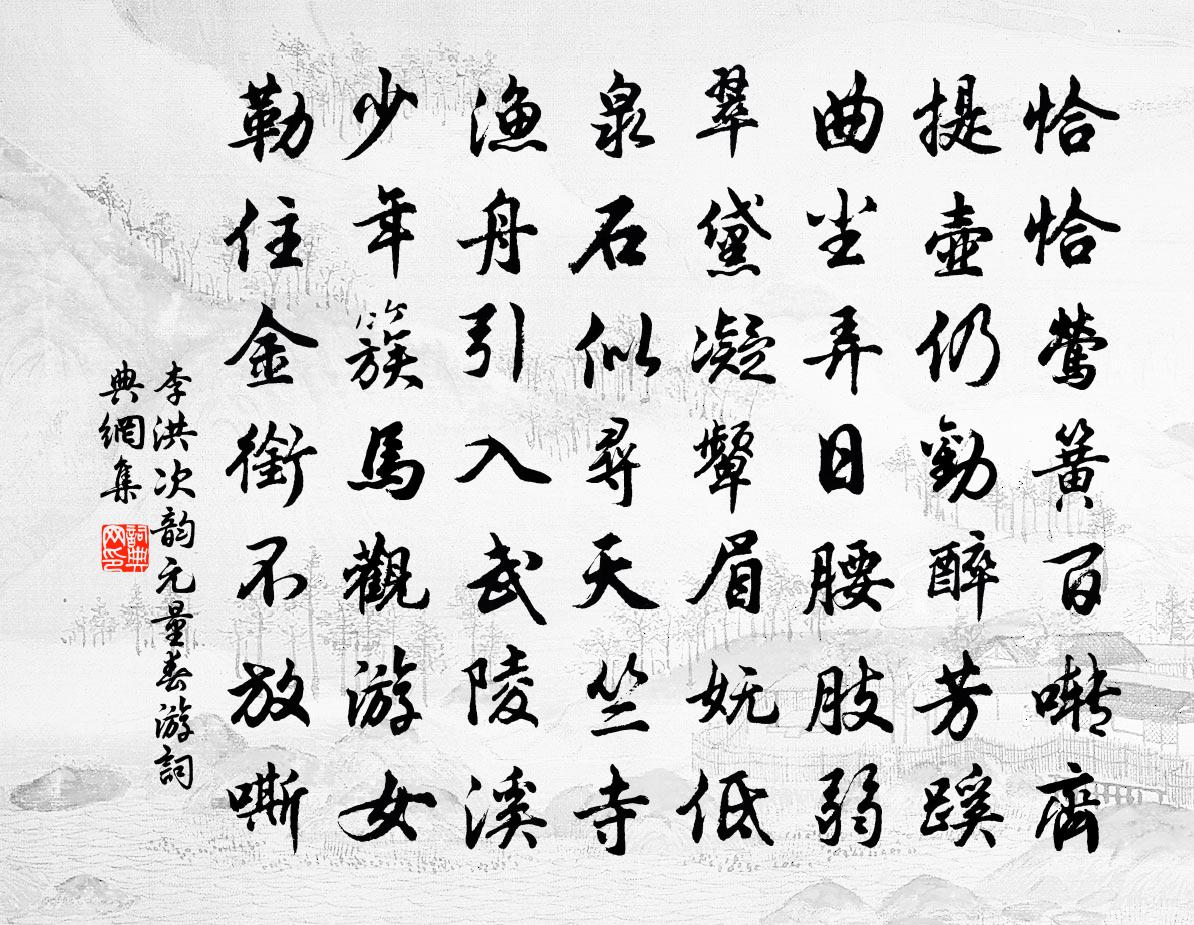 恰恰莺簧百啭齊
提壶仍勸醉芳蹊
曲尘弄日腰肢弱
翠黛凝顰眉妩低
泉石似尋天竺寺
渔舟引入武陵溪
少年簇馬觀游女
勒住金銜不放嘶
李洪次韵元量春游詞
典網集
詞典网印